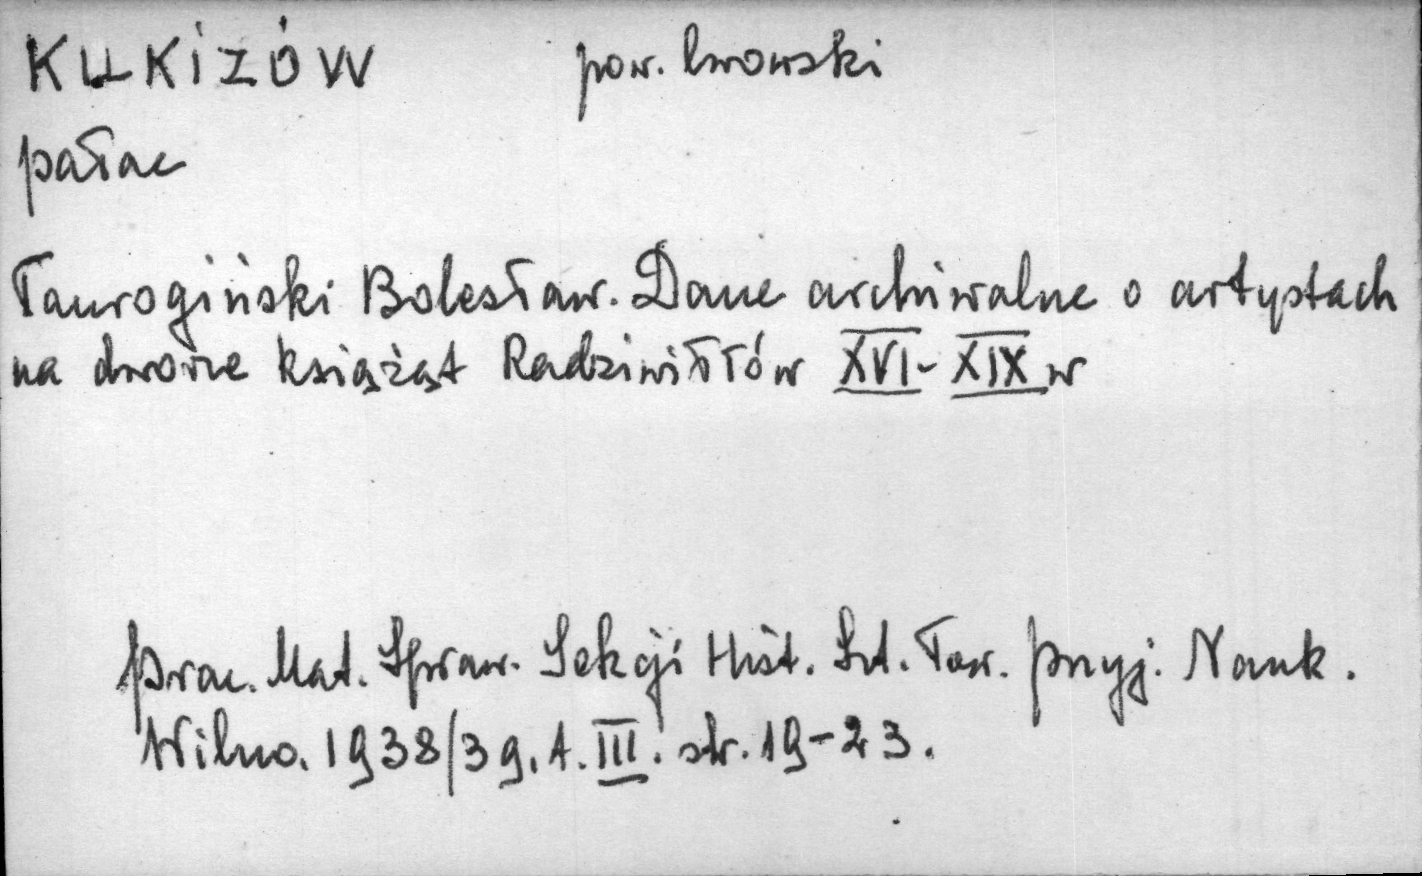 KUKIZÓW pow. lwowski
pałac
Taurogiński Bolesław. Dane archiwalne o artystach
na dworze książąt Radziwiłłów XVI-XIX w
Prac. Mat. Spraw. Sekcji Hist. Szt. Tow. Przyj. Nauk.
Wilno. 1938/39. t. III. str. 19-23.